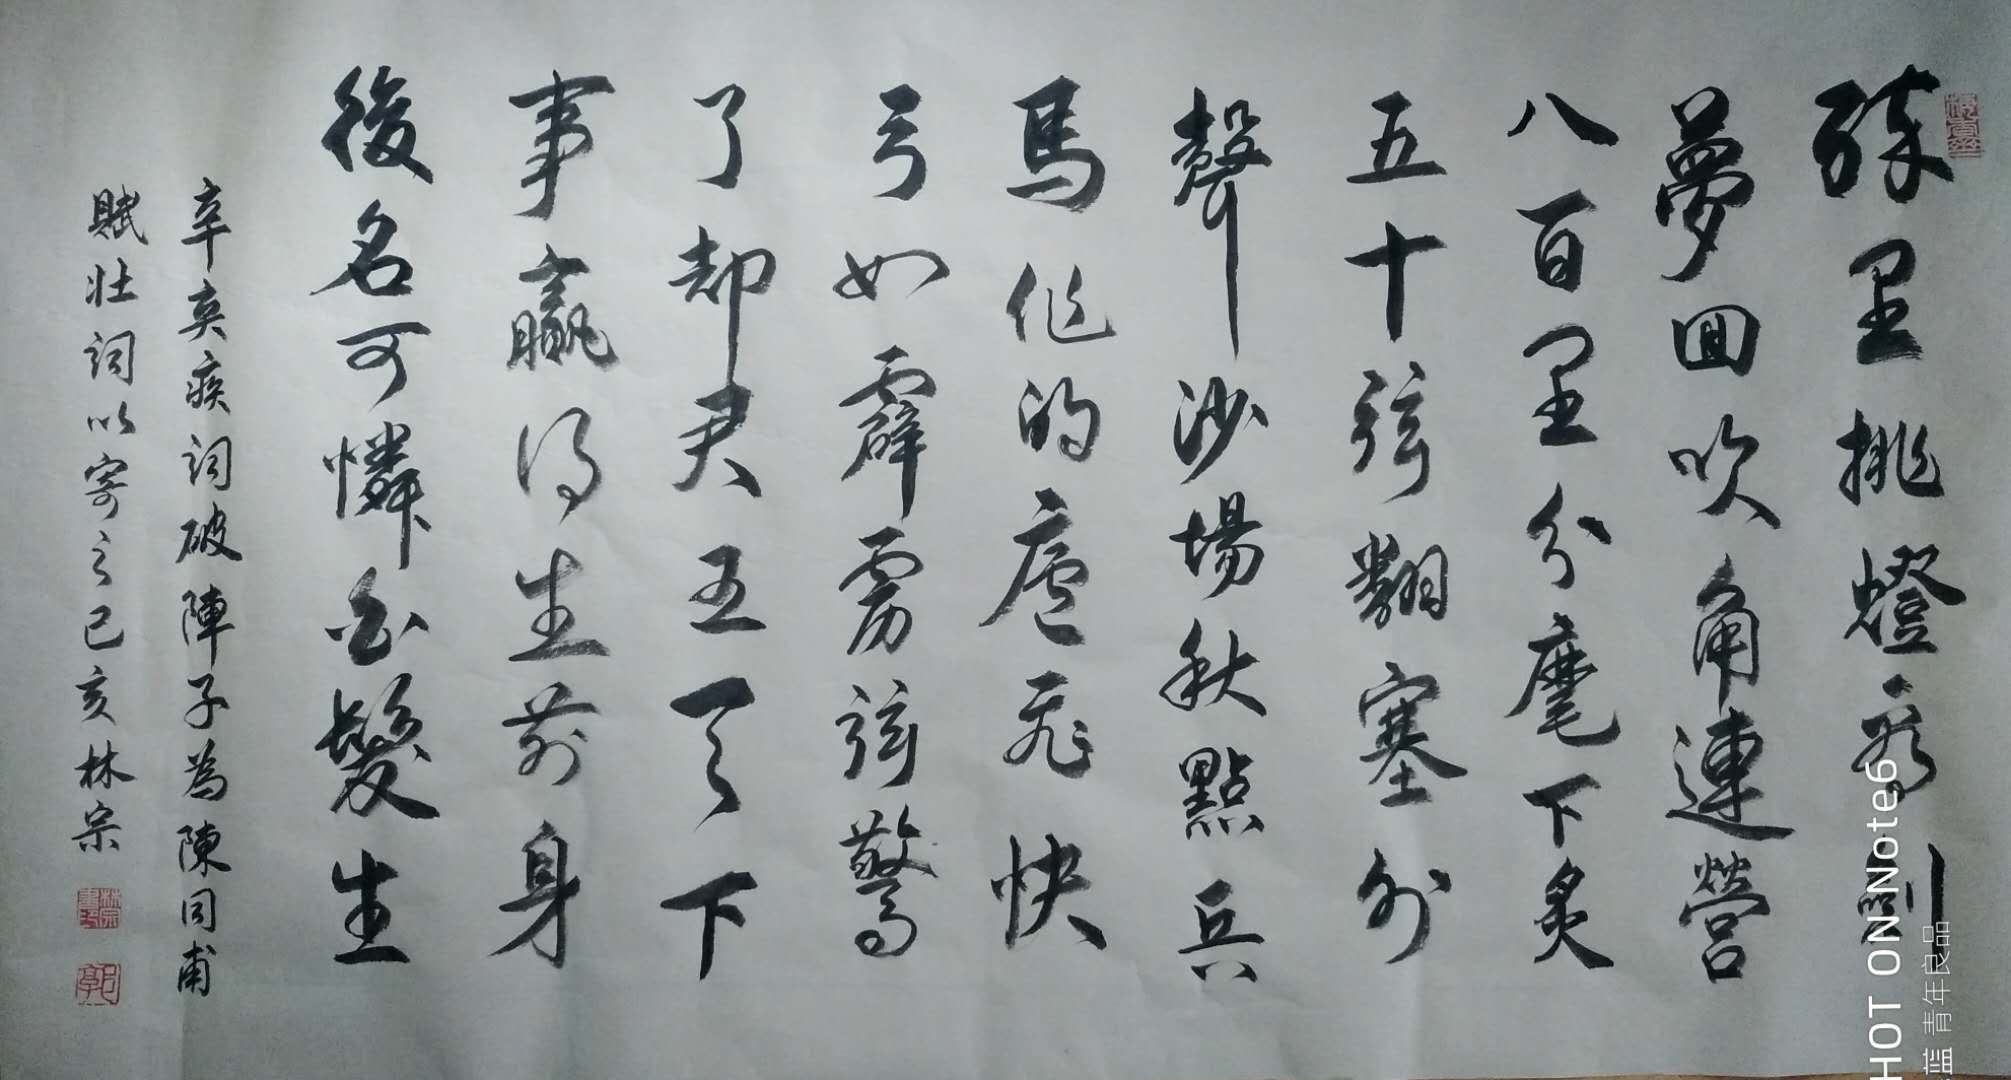 醉里挑燈看劍
夢回吹角連營
八百里分麾下炙
五十弦翻塞外
聲沙場秋點兵
馬作的盧飛快
弓如霹靂弦驚
了却君王天下
事贏得生前身
後名可憐白髮生
辛棄疾詞破陣子為陳同甫
賦壯詞以寄之己亥林宗
HOT ON Note6
蓝 青年良品